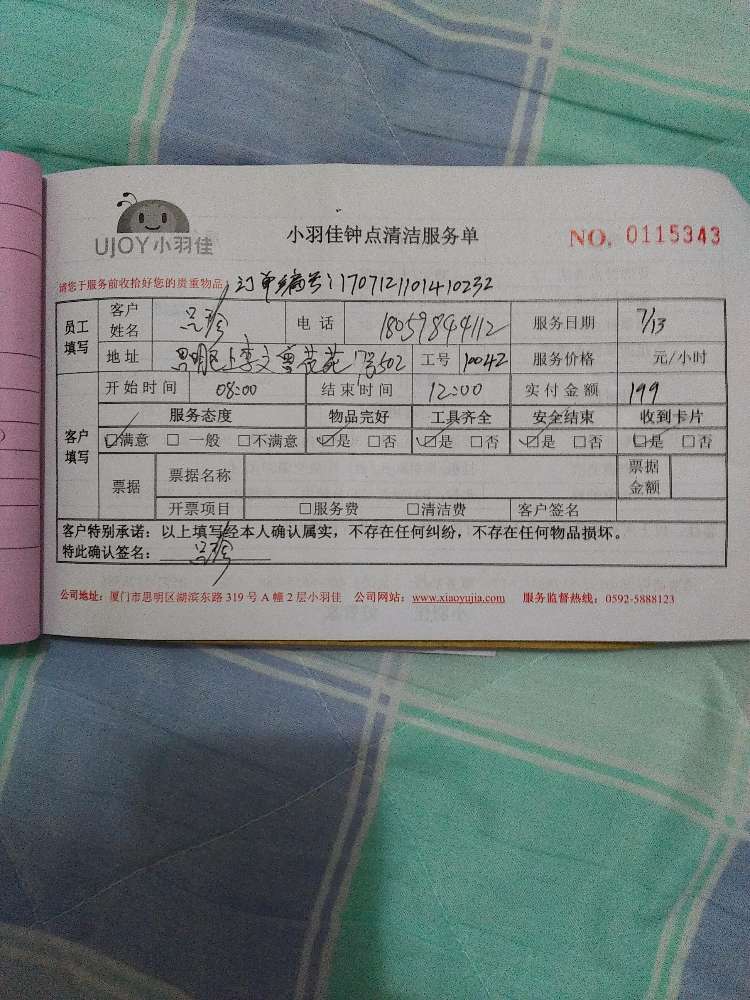 UJOY小羽佳
小羽佳钟点清洁服务单
NO. 0115343
请您于服务前收拾好您的贵重物品 订单编号:1707121101410232
员工填写 客户姓名 电话 18059844112 服务日期 7/13
地址 思明区 502 工号 10042 服务价格 元/小时
客户填写 开始时间 08:00 结束时间 12:00 实付金额 199
服务态度 物品完好 工具齐全 安全结束 收到卡片
☑满意 □一般 □不满意 ☑是 □否 ☑是 □否 ☑是 □否 ☑是 □否
票据 票据名称 票据金额
开票项目 □服务费 □清洁费 客户签名
客户特别承诺:以上填写经本人确认属实,不存在任何纠纷,不存在任何物品损坏。
特此确认签名:
公司地址:厦门市思明区湖滨东路 319 号 A 幢 2 层小羽佳 公司网站:www.xiaoyujia.com 服务监督热线:0592-5888123